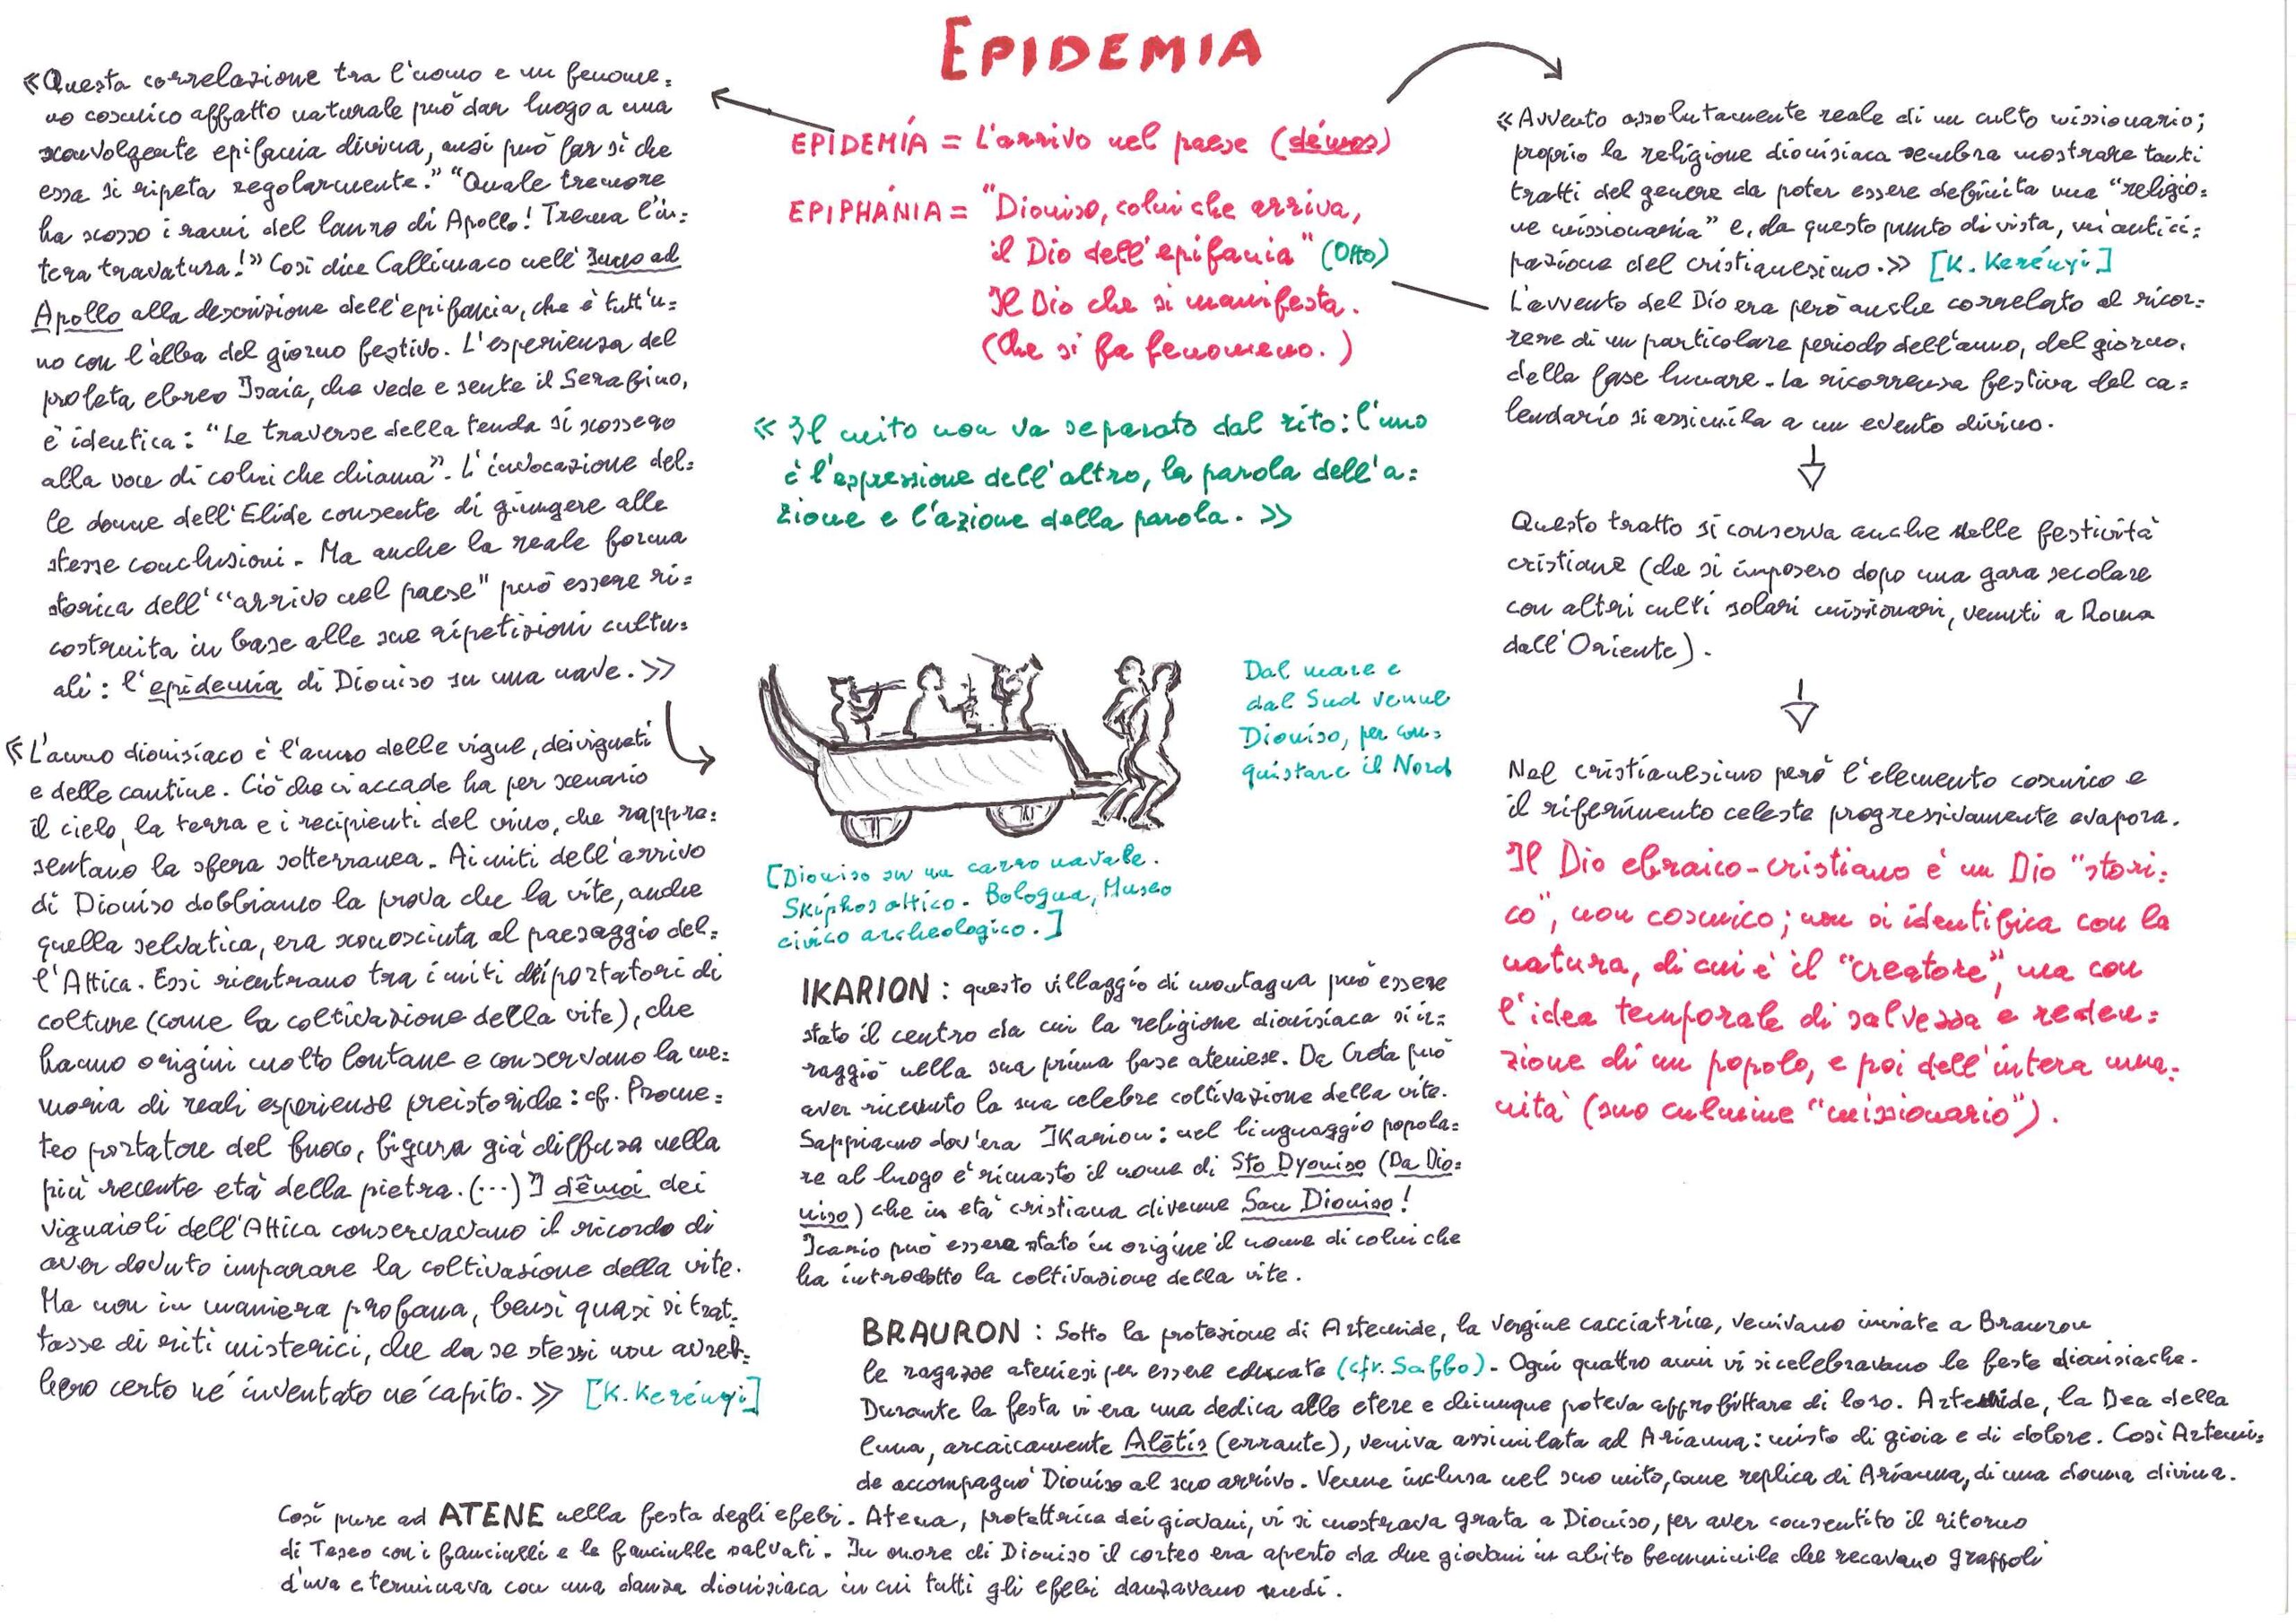 EPIDEMIA
EPIDEMÍA = L'arrivo nel paese (démos)
EPIPHÁNIA = "Dioniso, colui che arriva,
il Dio dell'epifania" (Otto)
Il Dio che si manifesta.
(Che si fa fenomeno.)
«Il mito non va separato dal rito: l'uno
è l'espressione dell'altro, la parola dell'a=
zione e l'azione della parola.»
«Questa correlazione tra l'uomo e un fenome=
no cosmico affatto naturale può dar luogo a una
sconvolgente epifania divina, anzi può far sì che
essa si ripeta regolarmente." "Quale tremore
ha scosso i rami del lauro di Apollo! Trema l'in=
tera travatura!» Così dice Callimaco nell'Inno ad
Apollo alla descrizione dell'epifania, che è tutt'u=
no con l'alba del giorno festivo. L'esperienza del
profeta ebreo Isaia, che vede e sente il Serafino,
è identica: "Le traverse della tenda si scossero
alla voce di colui che chiama". L'invocazione del=
le donne dell'Elide consente di giungere alle
stesse conclusioni. Ma anche la reale forma
storica dell'"arrivo nel paese" può essere ri=
costruita in base alle sue ripetizioni cultu=
ali: l'epidemia di Dioniso su una nave.»
«L'anno dionisíaco è l'anno delle vigne, dei vigneti
e delle cantine. Ciò che vi accade ha per scenario
il cielo, la terra e i recipienti del vino, che rappre=
sentano la sfera sotterranea. Ai miti dell'arrivo
di Dioniso dobbiamo la prova che la vite, anche
quella selvatica, era sconosciuta al paesaggio del=
l'Attica. Essi rientrano tra i miti di portatori di
colture (come la coltivazione della vite), che
hanno origini molto lontane e conservano la me=
moria di reali esperienze preistoriche: cf. Prome=
teo portatore del fuoco, figura già diffusa nella
più recente età della pietra. (...) I dêmoi dei
vignaioli dell'Attica conservavano il ricordo di
aver dovuto imparare la coltivazione della vite.
Ma non in maniera profana, bensì quasi si trat=
tasse di riti misterici, che da se stessi non avreb=
bero certo né inventato né capito.» [K. Kerényi]
Dal mare e
dal Sud venne
Dioniso, per con=
quistare il Nord
[Dioniso su un carro navale.
Skiphos attico. Bologna, Museo
civico archeologico.]
IKARION: questo villaggio di montagna può essere
stato il centro da cui la religione dionisíaca si ir=
raggiò nella sua prima fase ateniese. Da Creta può
aver ricevuto la sua celebre coltivazione della vite.
Sappiamo dov'era Ikarion: nel linguaggio popola=
re al luogo è rimasto il nome di Sto Dyoniso (Da Dio=
niso) che in età cristiana divenne San Dioniso!
Icario può essere stato in origine il nome di colui che
ha introdotto la coltivazione della vite.
«Avvento assolutamente reale di un culto missionario;
proprio la religione dionisiaca sembra mostrare tanti
tratti del genere da poter essere definita una "religio=
ne missionaria" e, da questo punto di vista, un'antici=
pazione del cristianesimo.» [K. Kerényi]
L'avvento del Dio era però anche correlato al ricor=
rere di un particolare periodo dell'anno, del giorno,
della fase lunare. La ricorrenza festiva del ca=
lendario si assimila a un evento divino.
Questo tratto si conserva anche nelle festività
cristiane (che si imposero dopo una gara secolare
con altri culti solari missionari, venuti a Roma
dall'Oriente).
Nel cristianesimo però l'elemento cosmico e
il riferimento celeste progressivamente evapora.
Il Dio ebraico-cristiano è un Dio "stori=
co", non cosmico; non si identifica con la
natura, di cui è il "creatore", ma con
l'idea temporale di salvezza e reden=
zione di un popolo, e poi dell'intera uma=
nità (suo culmine "missionario").
BRAURON: Sotto la protezione di Artemide, la vergine cacciatrice, venivano inviate a Brauron
le ragazze ateniesi per essere educate (cfr. Saffo). Ogni quattro anni vi si celebravano le feste dionisiache.
Durante la festa vi era una dedica alle etere e chiunque poteva approfittare di loro. Artemide, la Dea della
luna, arcaicamente Alētis (errante), veniva assimilata ad Arianna: misto di gioia e di dolore. Così Artemi=
de accompagnò Dioniso al suo arrivo. Venne inclusa nel suo mito, come replica di Arianna, di una donna divina.
Così pure ad ATENE nella festa degli efebi. Atena, protettrice dei giovani, vi si mostrava grata a Dioniso, per aver consentito il ritorno
di Teseo con i fanciulli e le fanciulle salvati. In onore di Dioniso il corteo era aperto da due giovani in abito femminile che recavano grappoli
d'uva e terminava con una danza dionisiaca in cui tutti gli efebi danzavano nudi.